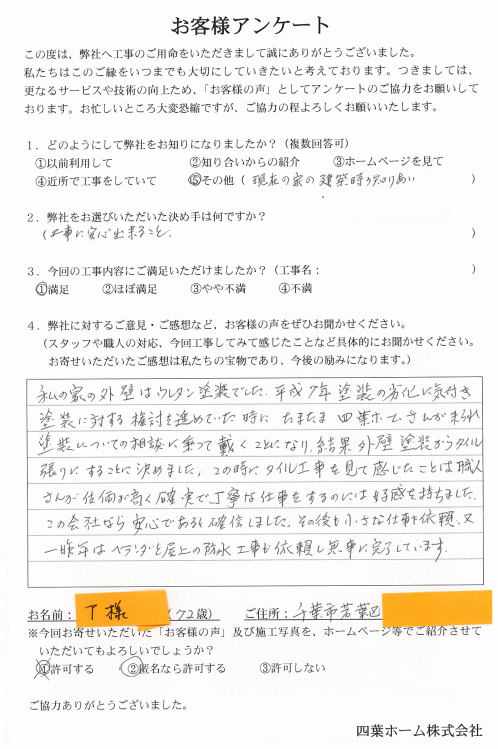 お客様アンケート
この度は、弊社へ工事のご用命をいただきまして誠にありがとうございました。
私たちはこのご縁をいつまでも大切にしていきたいと考えております。つきましては、
更なるサービスや技術の向上ため、「お客様の声」としてアンケートのご協力をお願いして
おります。お忙しいところ大変恐縮ですが、ご協力の程よろしくお願いいたします。
1．どのようにして弊社をお知りになりましたか？（複数回答可）
①以前利用して ②知り合いからの紹介 ③ホームページを見て
④近所で工事をしていて ⑤その他（現在の家の建築時の知りあい）
2．弊社をお選びいただいた決め手は何ですか？
（工事に安心出来ること。）
3．今回の工事内容にご満足いただけましたか？（工事名：）
①満足 ②ほぼ満足 ③やや不満 ④不満
4．弊社に対するご意見・ご感想など、お客様の声をぜひお聞かせください。
（スタッフや職人の対応、今回工事してみて感じたことなど具体的にお聞かせください。
お寄せいただいたご感想は私たちの宝物であり、今後の励みになります。）
私の家の外壁はウレタン塗装でした。平成7年塗装の劣化に気付き
塗装に対する検討を進めていた時にたまたま四葉ホームさんが来られ
塗装についての相談に乗って戴くことになり、結果外壁塗装からタイル
張りにすることに決めました。この時にタイル工事を見て感じたことは職人
さんが任価が高く確実で丁寧な仕事をするのには好感を持ちました。
この会社なら安心であると確信しました。その後も小さな仕事を依頼、又
一昨年はベランダと屋上の防水工事も依頼し無事に完了しています。
お名前：T様（72歳） ご住所：千葉市若葉区
※今回お寄せいただいた「お客様の声」及び施工写真を、ホームページ等でご紹介させて
いただいてもよろしいでしょうか？
①許可する ②匿名なら許可する ③許可しない
ご協力ありがとうございました。
四葉ホーム株式会社